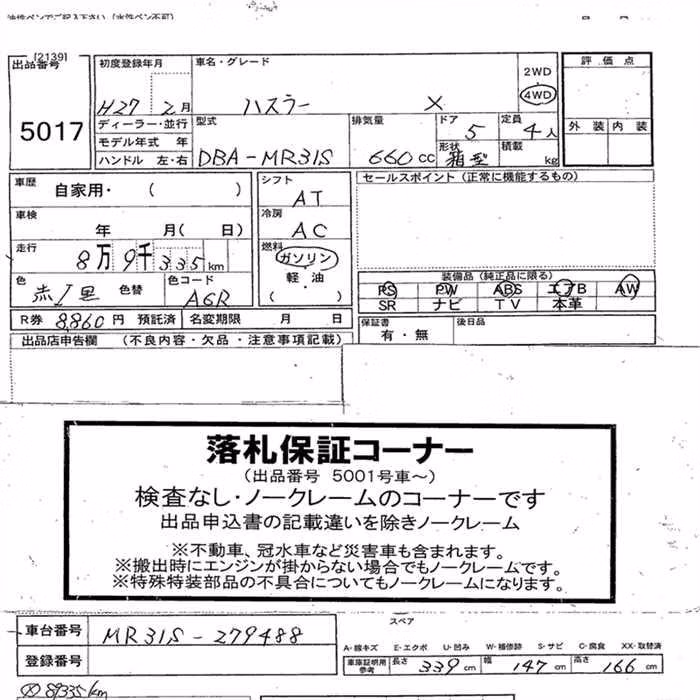 油性ペンでご記入下さい（水性ペン不可）
[2139]
出品番号
5017
初度登録年月
H27 2月
車名・グレード
ハスラー X
2WD
4WD
評価点
外装 内装
ディーラー・並行
モデル年式 年
ハンドル 左・右
型式
DBA-MR31S
排気量
660cc
ドア
5
形状
箱型
定員
4人
積載
kg
車歴
自家用・（ ）
車検
年 月（ 日）
走行
8万9千335km
色
赤/黒 色替
色コード
A6R
シフト
AT
冷房
AC
燃料
ガソリン
軽・油
（ ）
セールスポイント（正常に機能するもの）
装備品（純正品に限る）
PS PW ABS エアB AW
SR ナビ TV 本革
R券 8,860円 預託済 名変期限 月 日
保証書
有・無
後日品
出品店申告欄 （不良内容・欠品・注意事項記載）
落札保証コーナー
（出品番号 5001号車～）
検査なし・ノークレームのコーナーです
出品申込書の記載違いを除きノークレーム
※不動車、冠水車など災害車も含まれます。
※搬出時にエンジンが掛からない場合でもノークレームです。
※特殊特装部品の不具合についてもノークレームになります。
車台番号 MR31S-279488
登録番号
スペア
A-線キズ E-エクボ U-凹み W-補修跡 S-サビ C-腐食 XX-取替済
車庫証明用参考 長さ 339cm 幅 147cm 高さ 166cm
89335km